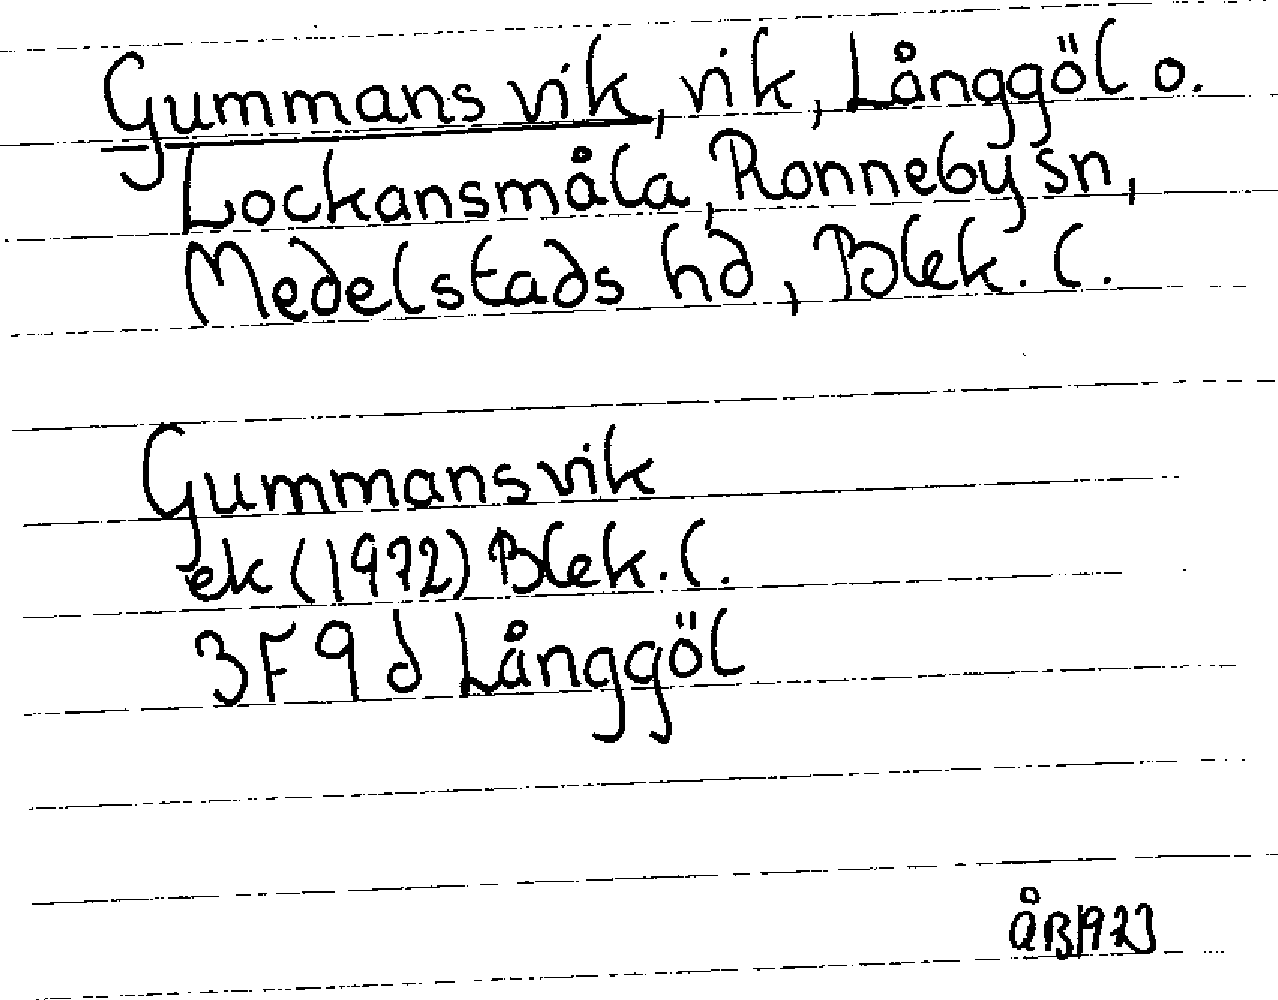 Gummans vik, vik, Långgöl o.
Lockansmåla, Ronneby sn,
Medelstads hd, Blek. l.
Gummansvik
ek (1972) Blek. l.
3F 9d Långgöl
ÅB 1973